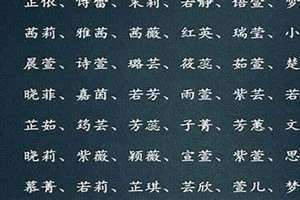 芷依、诗蕾、茉莉、若静、语萱、梦
茜莉、雅茜、茜薇、红英、瑞莹、小
展萱、诗萱、璐芸、筱蕊、茹萱、楚
晓菲、嘉茵、若芳、雨萱、紫芸、若
芷茹、筠芸、芳蕊、子菁、芳蕙、文
晓莉、紫薇、颖薇、宣萱、紫萱、思
慕菁、若莉、芷琪、芸欣、萱儿、梦